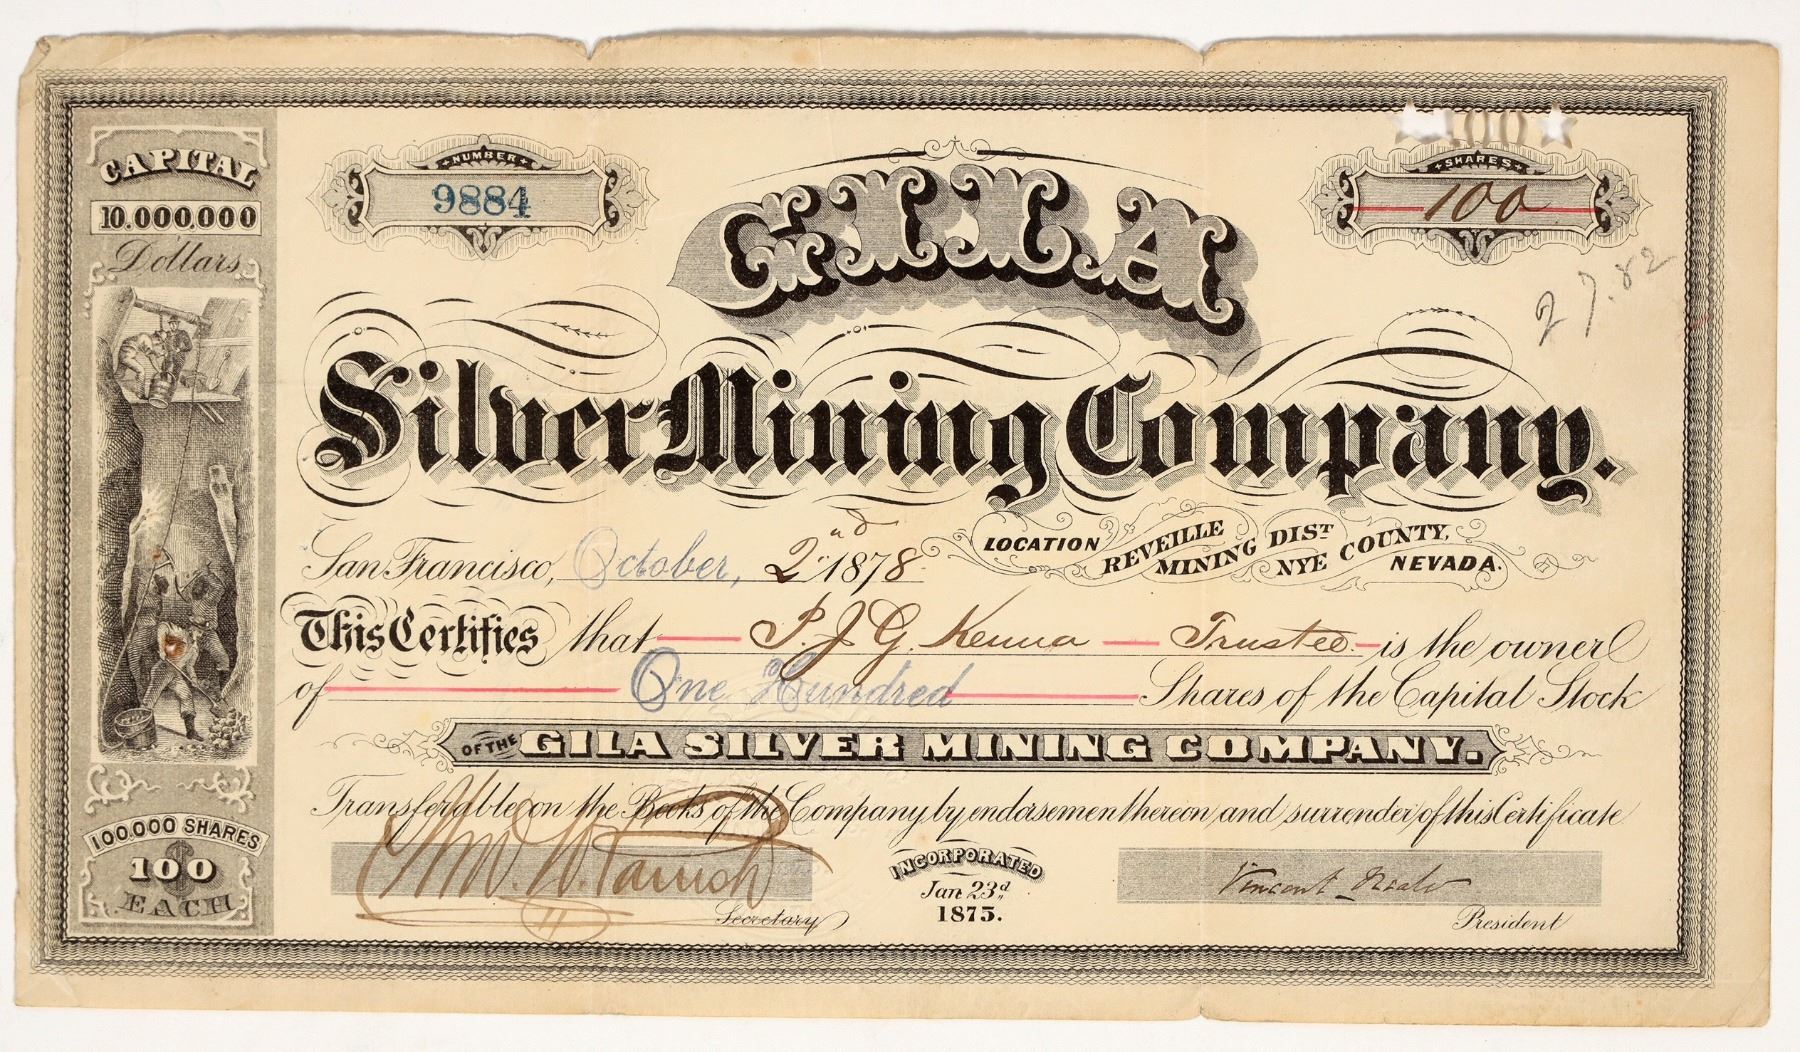 CAPITAL
10.000.000
Dollars
NUMBER
9884
100
SHARES
100
27.82
GILA
Silver Mining Company.
San Francisco, October, 2nd 1878
LOCATION REVEILLE MINING DIST NYE COUNTY, NEVADA.
This Certifies that P. J. G. Kenna Trustee is the owner
of One Hundred Shares of the Capital Stock
OF THE GILA SILVER MINING COMPANY.
Transferable on the Books of the Company by endorsement hereon and surrender of this Certificate
100.000 SHARES
$100
EACH
Wm. H. Parrish
Secretary
INCORPORATED
Jan 23d,
1875.
Vincent
President